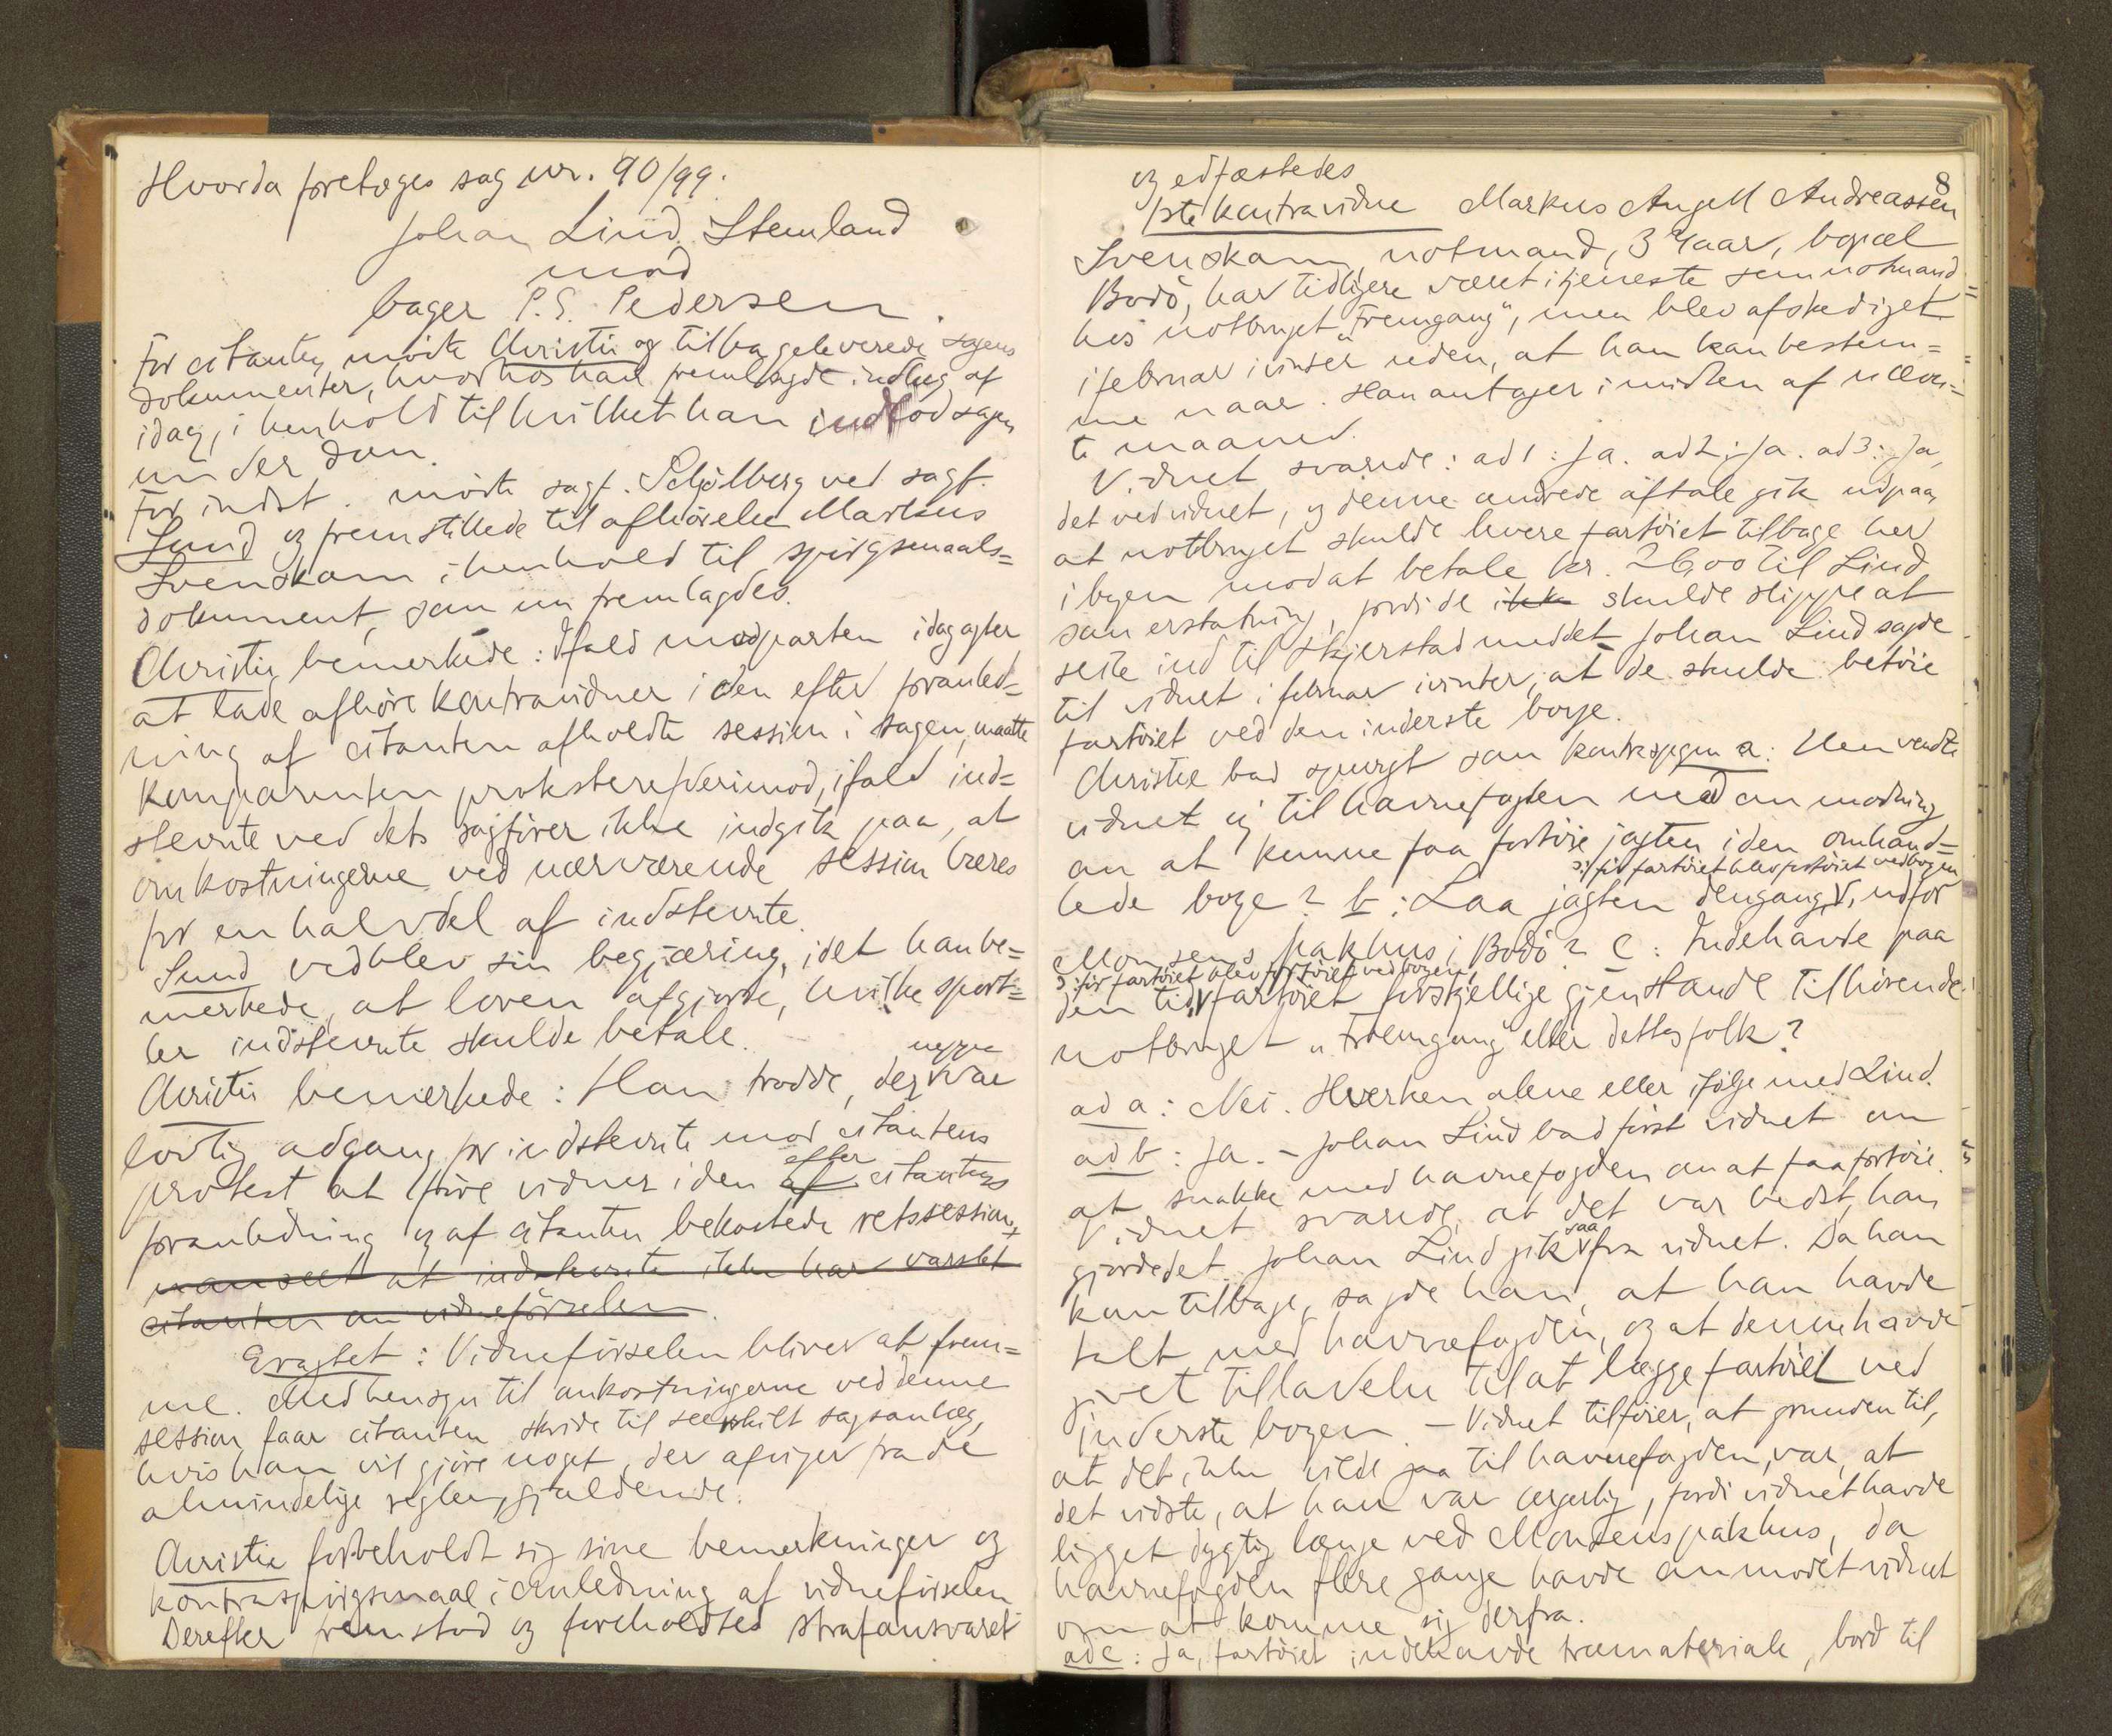 Hvorda foretoges sag nr. 90/99.
Johan Lind, Stemland
mod
bager P. E. Pedersen.
For citanten mødte Christie og tilbageleverede sagens
dokumenter, hvorhos han fremlagde indlæg af
idag, i henhold til hvilket han indlod sagen
under dom.
For indst. mødte sagf. Schjølberg ved sagf.
Lund og fremstillede til afhørelse Markus
Svenskam i henhold til spørgsmaals=
dokument, som nu fremlagdes.
Christie bemerkede: Ifald modparten idag agter
at lade afhøre kontravidner i den efter foranled=
ning af citanten afholdte session i sagen, maatte
komparenten protestere derimod, ifald ind=
stevnte ved dets sagfører ikke indgik paa, at
omkostningerne ved nærværende session bæres
for en halvdel af indstevnte.
Lund vedblev sin begjæring, idet han be=
merkede, at loven afgjorde, hvilke sport=
ler indstevnte skulde betale.
Christie bemerkede: Han trodde, der neppe var
lovlig adgang for indstevnte mod citantens
protest at føre vidner i den af efter citantens
foranledning og af citanten bekostede retssession,
uanseet at indstevnte ikke har varslet
citanten om vidneførselen.
Eragtet: Vidneførselen bliver at frem=
me. Med hensyn til omkostningerne ved denne
session faar citanten skride til seerskilt sagsanlæg,
hvis han vil gjøre noget, der afviger fra de
almindelige regler, gjældende.
Christie forbeholdt sig sine bemerkninger og
kontraspørgsmaal i anledning af vidneførselen
Derefter fremstod og foreholdtes strafansvaret
8
og edfæstedes
1ste kontravidne Markus Angell Andreassen
Svenskam, notmand, 34 aar, bopæl
Bodø, har tidligere været i tjeneste som notmand
hos notbruget "Fremgang", men blev afskediget
i februar ivinter uden, at han kan bestem=
me naar. Han antager i midten af nævn=
te maaned.
Vidnet svarede: ad 1: Ja. ad 2: Ja. ad 3: Ja,
det ved vidnet, og denne ændrede aftale gik ud paa,
at notbruget skulde levere fartøiet tilbage her
i byen mod at betale kr. 26,00 til Lind
som erstatning, fordi de ikke skulde slippe at
seile ind til Skjerstad med det Johan Lind sagde
til vidnet i februar ivinter, at de skulde betøie
fartøiet ved den inderste boye.
Christie bad spurgt som kontraspgm a: Henvendte
vidnet sig til havnefogden med anmodning
om at kunne faa fortøie jagten i den omhand=
lede boye? b: Laa jagten dengang, ɔ: før fartøiet blev fortøiet ved boyen, udfor
Monsens pakhus i Bodø? c: Indehavde paa
den tid, ɔ: før fartøiet blev fortøiet ved boyen, fartøiet forskjellige gjenstande tilhørende
notbruget "Fremgang" eller dettes folk?
ad a: Nei. Hverken alene eller ifølge med Lind.
ad b: Ja. – Johan Lind bad først vidnet om
at snakke med havnefogden om at faa fortøie.
Vidnet svarede, at det var bedst, han
gjorde det. Johan Lind gik saa fra vidnet. Da han
kom tilbage, sagde han, at han havde
talt med havnefogden, og at denne havde
givet tilladelse til at lægge fartøiet ved
inderste boyen. – Vidnet tilføier, at grunden til,
at det ikke vilde gaa til havnefogden, var, at
det vidste, at han var ærgerlig, fordi vidnet havde
ligget dygtig længe ved Monsens pakhus, da
havnefogden flere gange havde anmodet vidnet
om at komme sig derfra.
ad c: Ja, fartøiet indehavde træmateriale, bord til